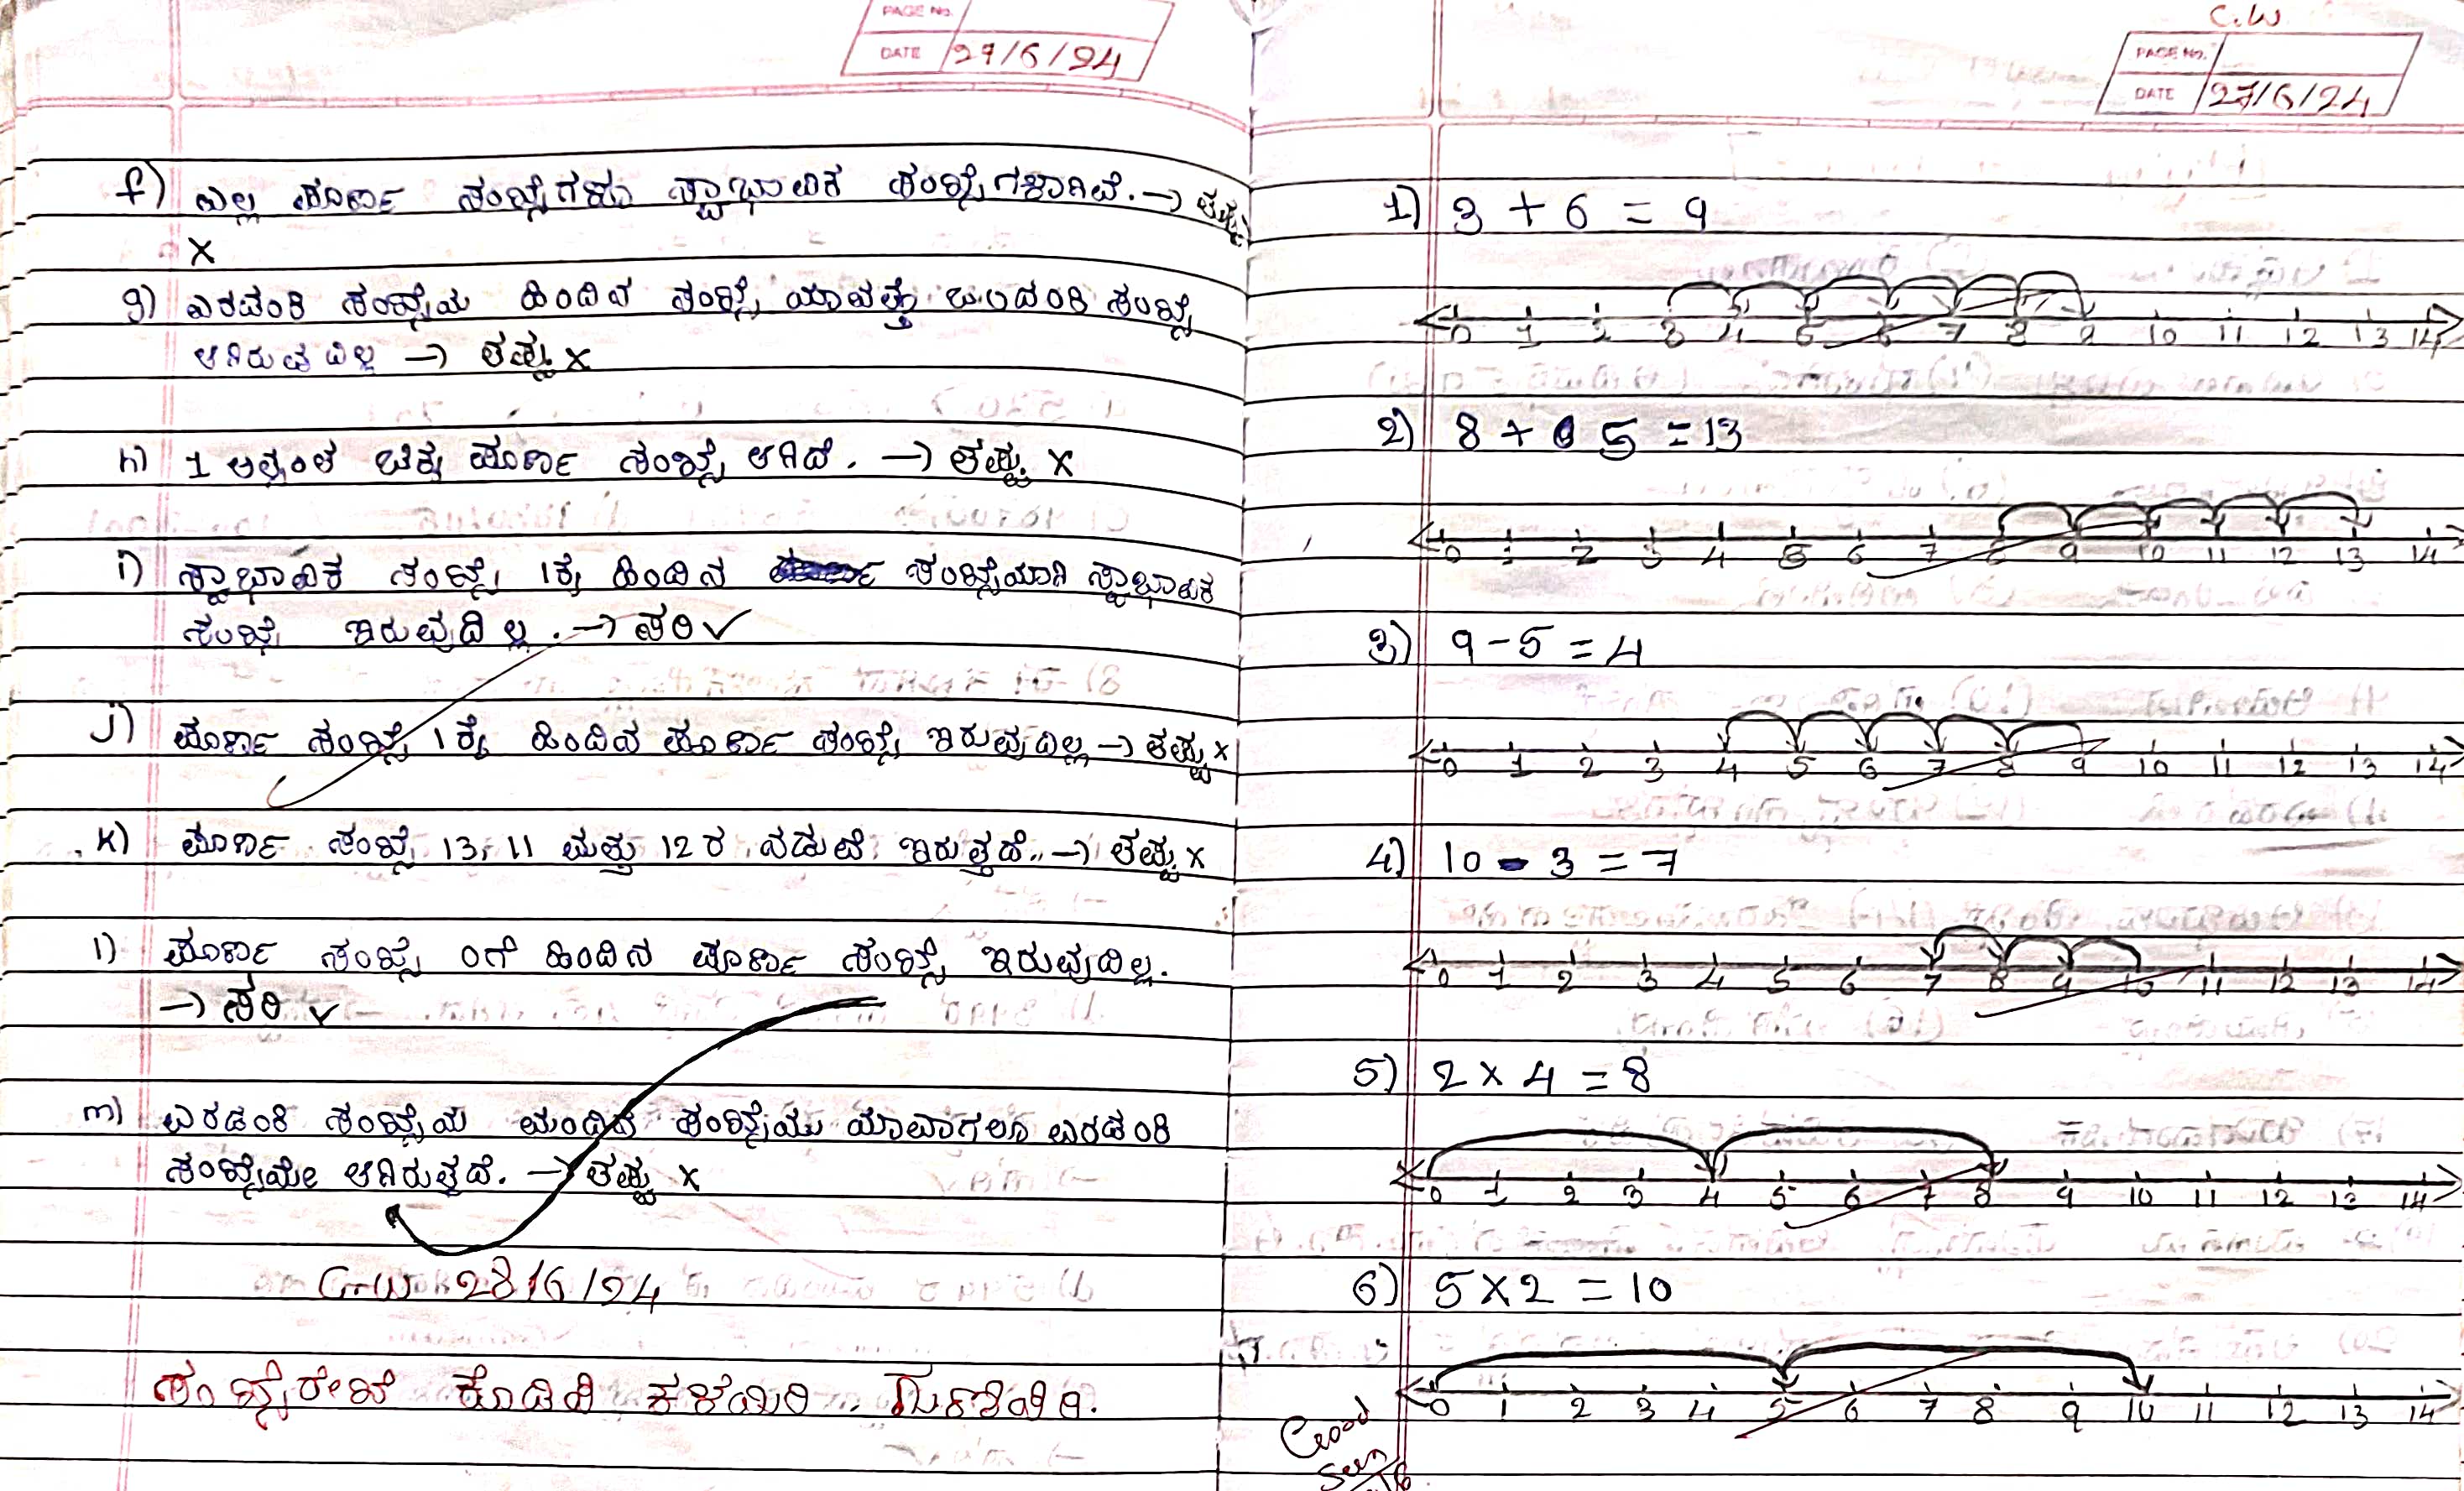 PAGE No.
DATE 27/6/24
f) ಎಲ್ಲ ಪೂರ್ಣ ಸಂಖ್ಯೆಗಳು ಸ್ವಾಭಾವಿಕ ಸಂಖ್ಯೆಗಳಾಗಿವೆ. → ತಪ್ಪು
x
g) ಎರಡಂಕಿ ಸಂಖ್ಯೆಯ ಹಿಂದಿನ ಸಂಖ್ಯೆ ಯಾವತ್ತೂ ಒಂದಂಕಿ ಸಂಖ್ಯೆ
ಆಗಿರುವದಿಲ್ಲ → ತಪ್ಪು x
h) 1 ಅತ್ಯಂತ ಚಿಕ್ಕ ಪೂರ್ಣ ಸಂಖ್ಯೆ ಆಗಿದೆ. → ತಪ್ಪು x
i) ಸ್ವಾಭಾವಿಕ ಸಂಖ್ಯೆ 1ಕ್ಕೆ ಹಿಂದಿನ ಸಂಖ್ಯೆಯಾಗಿ ಸ್ವಾಭಾವಿಕ
ಸಂಖ್ಯೆ ಇರುವುದಿಲ್ಲ. → ಸರಿ ✓
j) ಪೂರ್ಣ ಸಂಖ್ಯೆ 1ಕ್ಕೆ ಹಿಂದಿನ ಪೂರ್ಣ ಸಂಖ್ಯೆ ಇರುವುದಿಲ್ಲ → ತಪ್ಪು x
k) ಪೂರ್ಣ ಸಂಖ್ಯೆ 13, 11 ಮತ್ತು 12 ರ ನಡುವೆ ಇರುತ್ತದೆ. → ತಪ್ಪು x
l) ಪೂರ್ಣ ಸಂಖ್ಯೆ 0ಗೆ ಹಿಂದಿನ ಪೂರ್ಣ ಸಂಖ್ಯೆ ಇರುವುದಿಲ್ಲ.
→ ಸರಿ ✓
m) ಎರಡಂಕಿ ಸಂಖ್ಯೆಯ ಮುಂದಿನ ಸಂಖ್ಯೆಯು ಯಾವಾಗಲೂ ಎರಡಂಕಿ
ಸಂಖ್ಯೆಯೇ ಆಗಿರುತ್ತದೆ. → ತಪ್ಪು x
C.W 28/6/24
ಸಂಖ್ಯೆರೇಖೆ ಕೂಡಿಸಿ ಕಳೆಯಿರಿ ಗುಣಿಸಿರಿ.
C.W
PAGE No.
DATE 27/6/24
1) 3 + 6 = 9
0 1 2 3 4 5 6 7 8 9 10 11 12 13 14
2) 8 + 5 = 13
0 1 2 3 4 5 6 7 8 9 10 11 12 13 14
3) 9 - 5 = 4
0 1 2 3 4 5 6 7 8 9 10 11 12 13 14
4) 10 - 3 = 7
0 1 2 3 4 5 6 7 8 9 10 11 12 13 14
5) 2 x 4 = 8
0 1 2 3 4 5 6 7 8 9 10 11 12 13 14
6) 5 x 2 = 10
0 1 2 3 4 5 6 7 8 9 10 11 12 13 14
Good